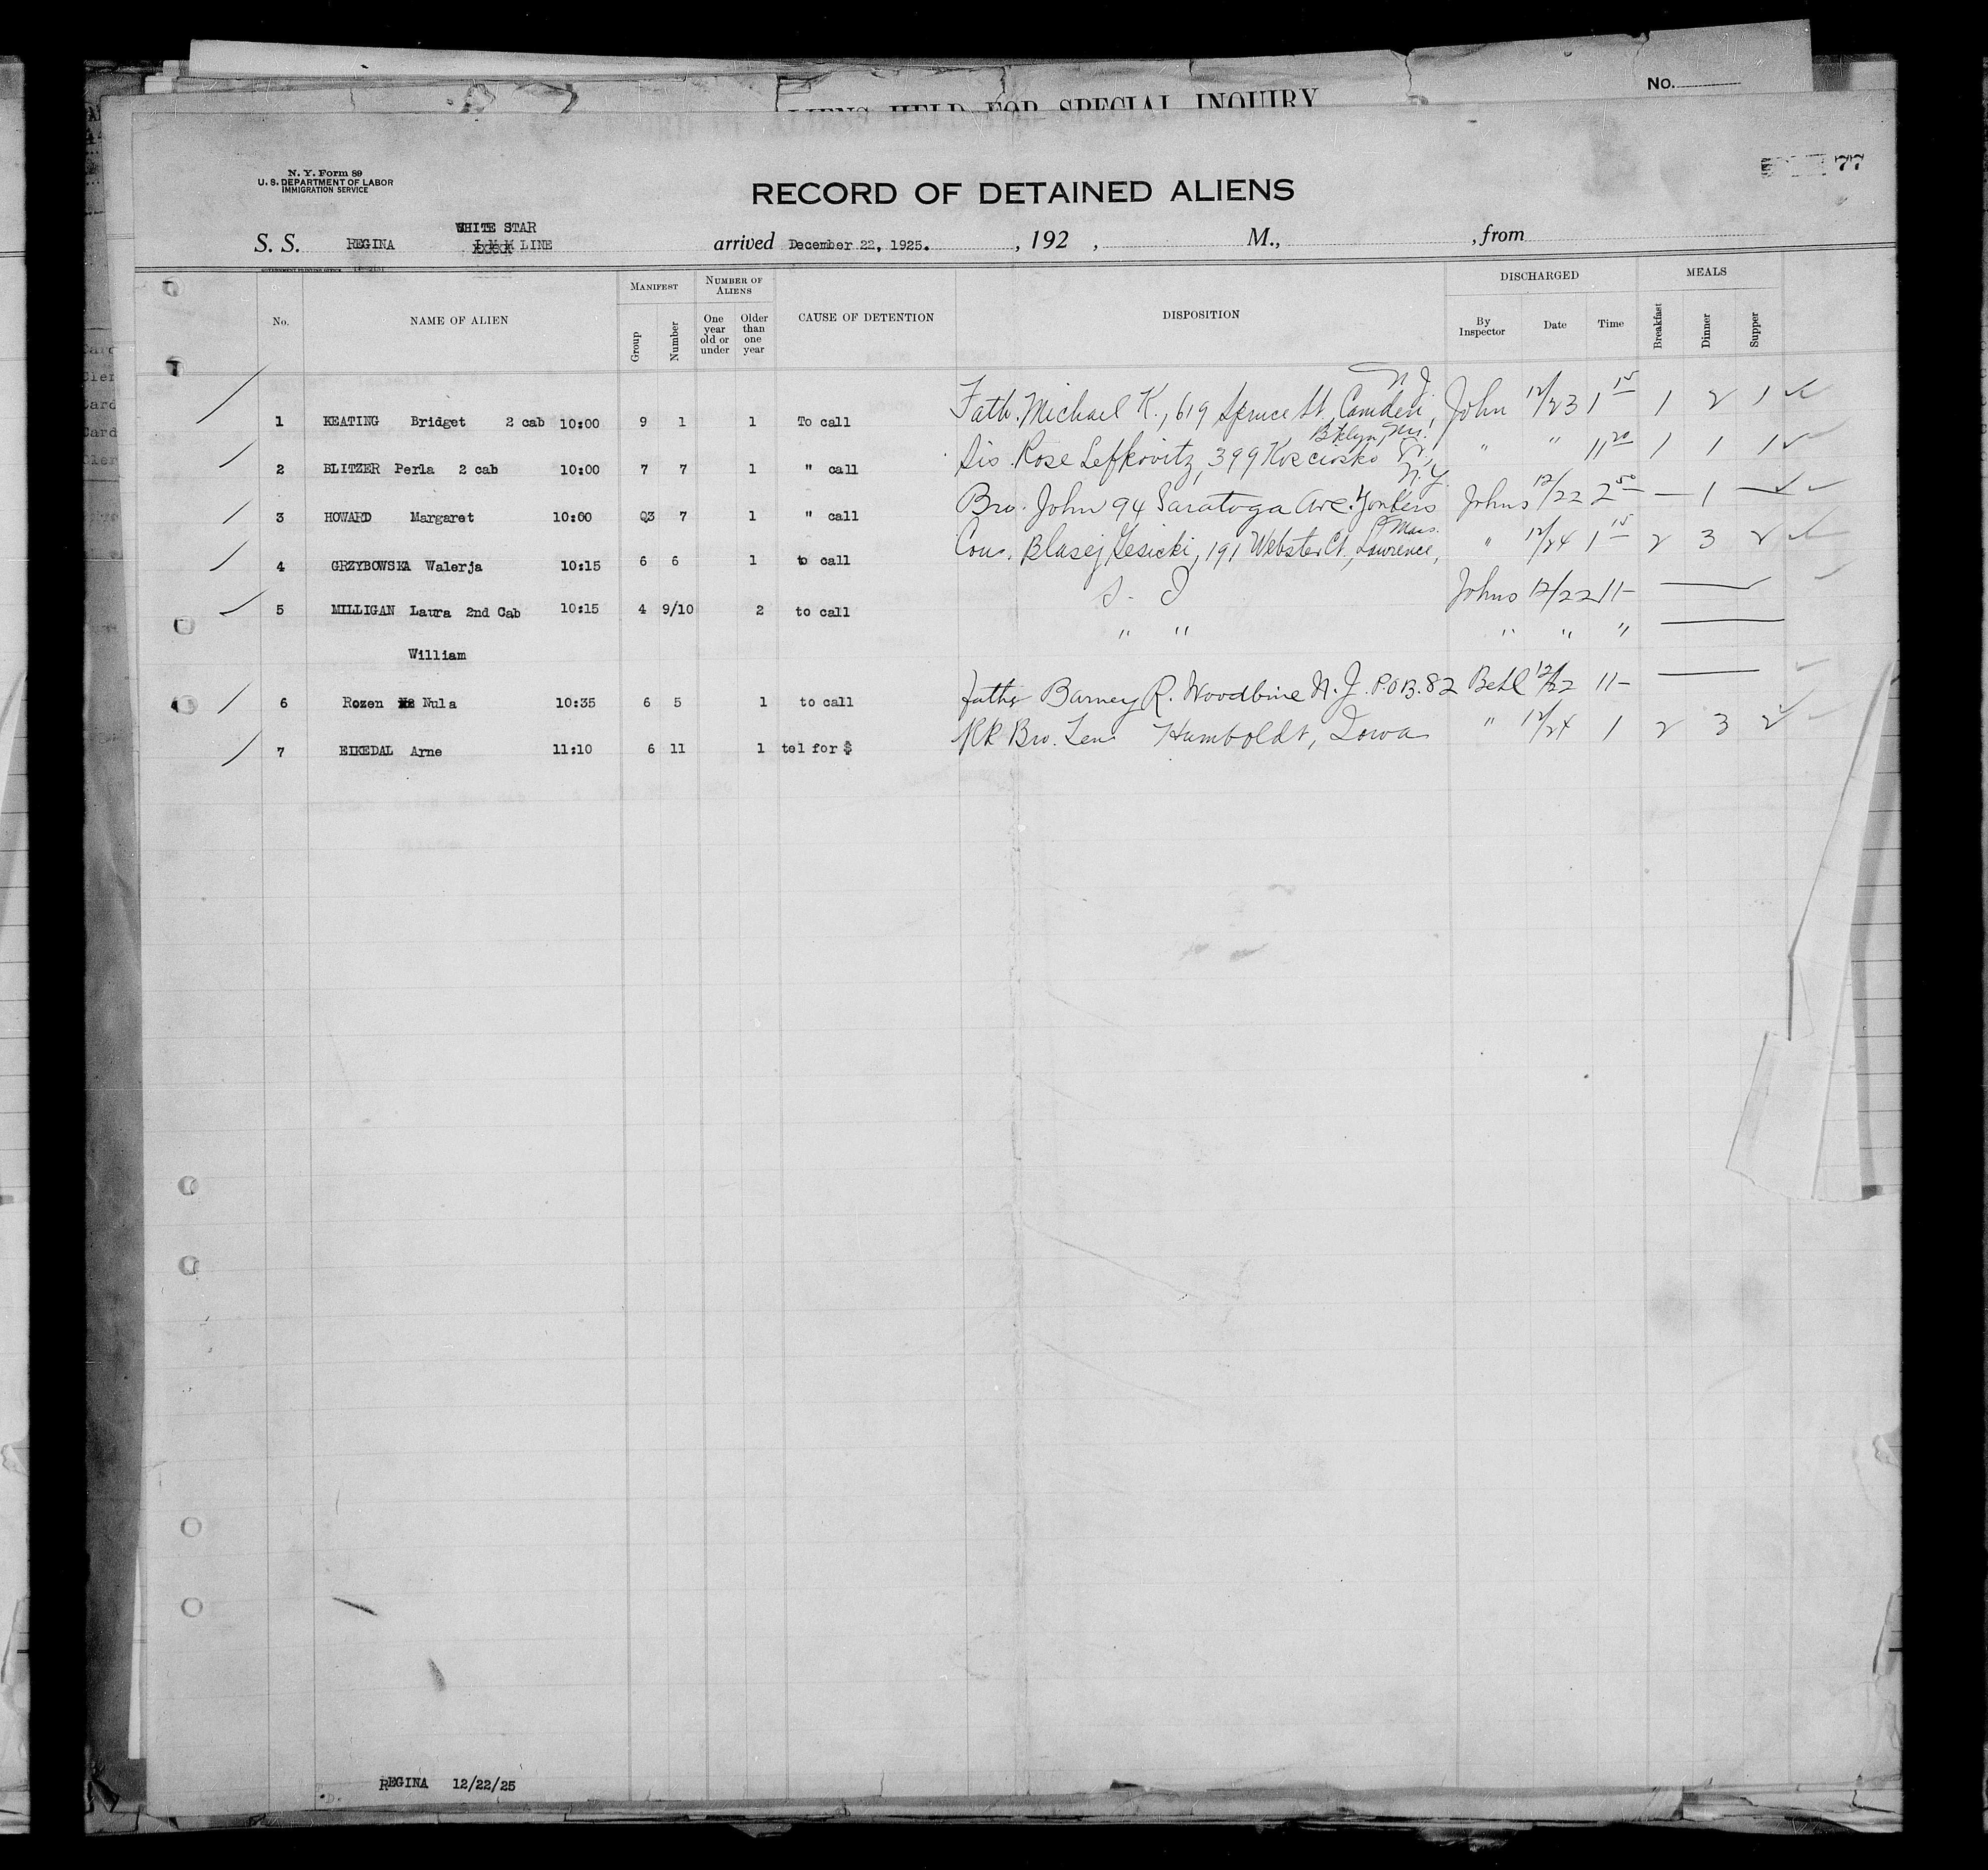 No.
ALIENS HELD FOR SPECIAL INQUIRY
77
N. Y. Form 89
U. S. DEPARTMENT OF LABOR
IMMIGRATION SERVICE
RECORD OF DETAINED ALIENS
WHITE STAR
S. S. REGINA LINE arrived December 22, 1925. , 192 , M., , from
GOVERNMENT PRINTING OFFICE
No. NAME OF ALIEN MANIFEST Group Number NUMBER OF ALIENS One year old or under Older than one year CAUSE OF DETENTION DISPOSITION DISCHARGED By Inspector Date Time MEALS Breakfast Dinner Supper
1 KEATING Bridget 2 cab 10:00 9 1 1 To call Fath. Michael K., 619 Spruce St., Camden, N J John 12/23 1 15 1 2 1
2 BLITZER Perla 2 cab 10:00 7 7 1 " call Sis. Rose Lefkovitz, 399 Kosciosko St., Bklyn, " " 11 20 1 1 1
3 HOWARD Margaret 10:00 Q3 7 1 " call Bro. John 94 Saratoga Ave. Yonkers N.Y. Johns 12/22 2 50 — 1 —
4 GRZYBOWSKA Walerja 10:15 6 6 1 to call Cous. Blasej Lesicki, 191 Webster Ct., Lawrence, Mass. " 12/24 1 15 2 3 2
5 MILLIGAN Laura 2nd Cab 10:15 4 9/10 2 to call S. I Johns 12/22 11-
William " " " " "
6 Rozen Nula 10:35 6 5 1 to call fathr Barney R. Woodbine N.J. P.O.B. 82 Behl 12/22 11-
7 EIKEDAL Arne 11:10 6 11 1 tel for $ RR Bro. Humboldt, Iowa " 12/24 1 2 3 2
REGINA 12/22/25